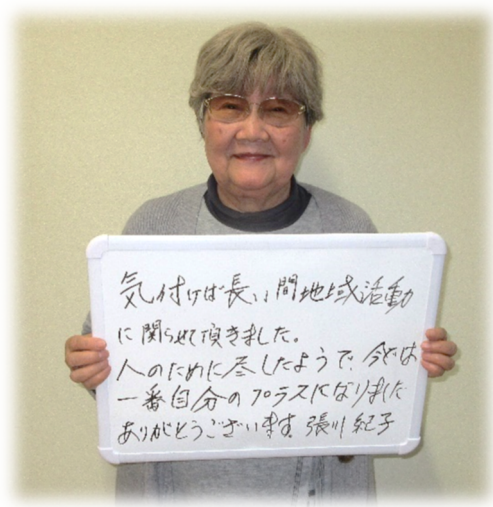 気付けば長い間地域活動
に関らせて頂きました。
人のために尽したようで、今では
一番自分のプラスになりました
ありがとうございます。張川紀子